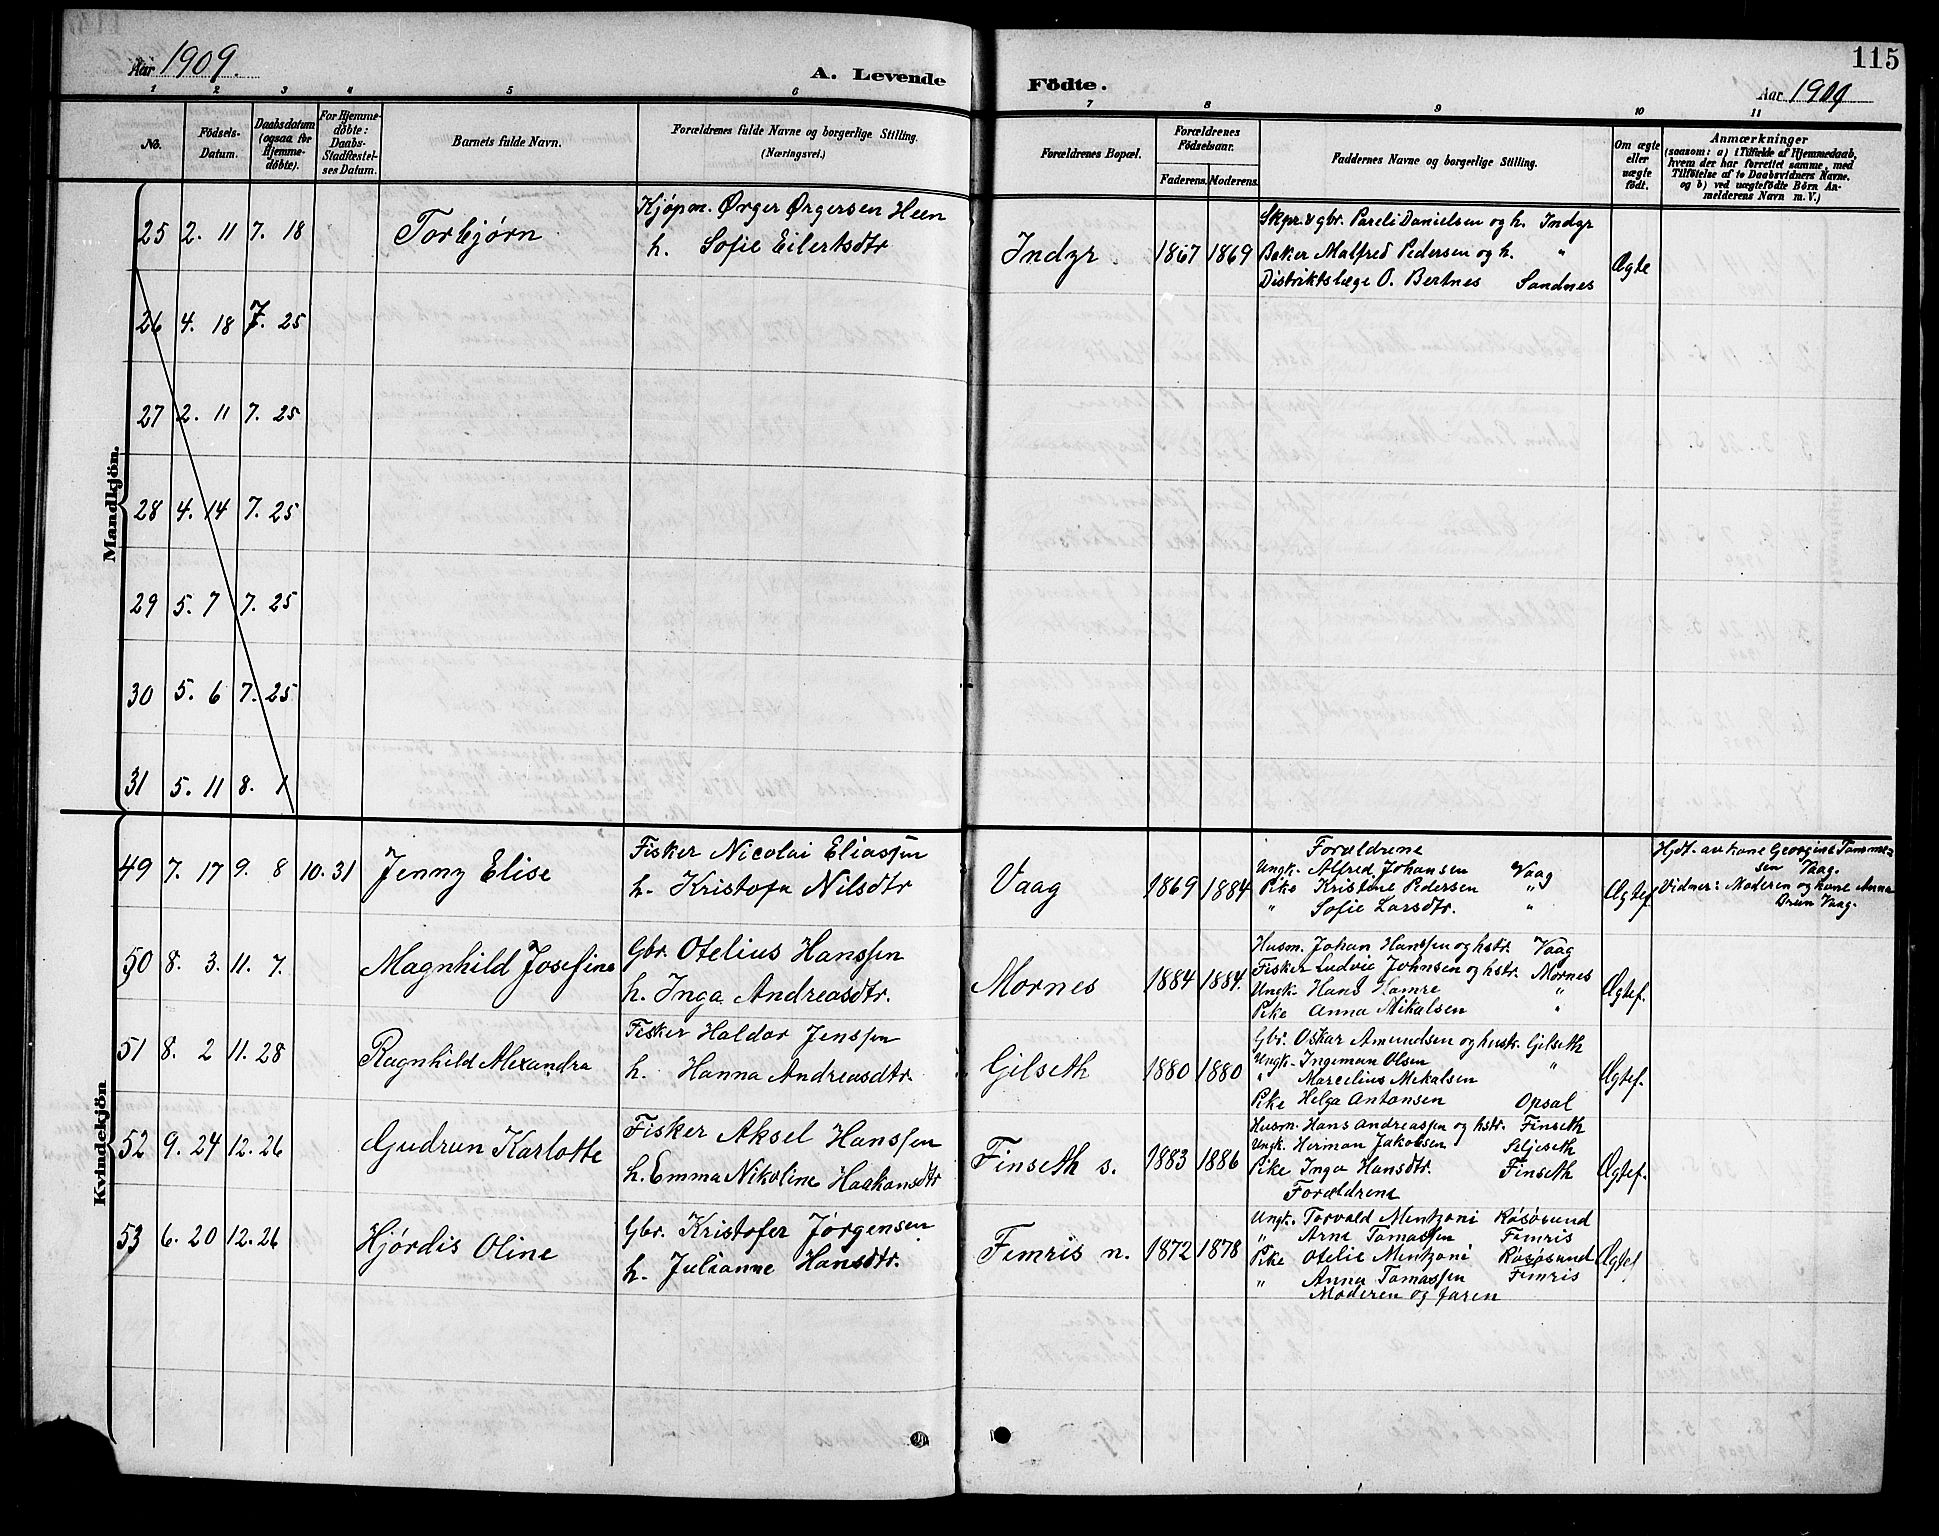 115
Aar 1909.
A. Levende
Födte.
Aar 1909
1 2 3 4 5 6 7 8 9 10 11
No.
Födsels-Datum.
Daabsdatum (ogsaa for Hjemmedöbte).
For Hjemmedöbte: Daabs-Stadfæstelses Datum.
Barnets fulde Navn.
Forældrenes fulde Navne og borgerlige Stilling.
(Næringsvei.)
Forældrenes Bopæl.
Forældrenes Födselsaar.
Faderens. Moderens.
Faddernes Navne og borgerlige Stilling.
Om ægte eller uægte födt.
Anmærkninger
(saasom: a) i Tilfælde af Hjemmedaab,
hvem der har forrettet samme, med
Tilföielse af to Daabsvidners Navne.
og b) ved uægtefödte Börn An-
melderens Navn m. V.)
Mandkjön.
25 2. 11 7. 18 Torbjørn
Kjøpm. Ørger Ørgersen Heen
h. Sofie Eilertsdtr
Indyr 1867 1869
Skpr. & gbr. Pareli Danielsen og h. Indyr
Baker Malfred Pedersen og h. "
Distriktslæge O. Bertnes Sandnes
Ægte
26 4. 18 7. 25
27 2. 11 7. 25
28 4. 14 7. 25
29 5. 7 7. 25
30 5. 6 7. 25
31 5. 11 8. 1
Kvindekjön
49 7. 17 9. 8 10. 31 Jenny Elise
Fisker Nicolai Eliassen
h. Kristofa Nilsdtr
Vaag 1869 1884
Forældrene
Ungk. Alfred Johansen Vaag
Pike Kristine Pedersen "
" Sofie Larsdtr. "
Ægtef.
Hjdt. av kone Georgine Tomme-
sen Vaag.
Vidner: Moderen og kone Anna
Brun Vaag.
50 8. 3. 11. 7. Magnhild Josefine
Gbr. Otelius Hanssen
h. Inga Andreasdtr.
Mornes 1884 1884.
Husm. Johan Hanssen og hstr. Vaag
Fisker Ludvig Johnsen og hstr. Mornes
Ungk. Hans Hamre "
Pike Anna Mikalsen "
Ægtef.
51 8. 2 11. 28 Ragnhild Alexandra
Fisker Haldor Jenssen
h. Hanna Andreasdtr.
Gilseth 1880 1880
Gbr. Oskar Amundsen og hustr. Gilseth
Ungk. Ingeman Olsen "
" Marcelius Mikalsen
Pike Helga Antonsen Opsal
Ægtef.
52 9. 24 12. 26 Gudrun Karlotte
Fisker Aksel Hanssen
h. Emma Nikoline Haakonsdtr
Finseth s. 1883 1886
Husm. Hans Andreassen og hstr. Finseth
Ungk. Herman Jakobsen Seljeseth
Pike Inga Hansdtr. Finseth
Forældrene
Ægtef.
53 6. 20 12. 26 Hjørdis Oline
Gbr. Kristofer Jørgensen
h. Julianne Hansdtr.
Femris n. 1872 1878
Ungk. Torvald Mentzoni Røsøsund
" Arne Tomassen Femris
Pike Otelie Mentzoni Røsøsund
" Anna Tomassen Femris
Moderen og faren
Ægtef